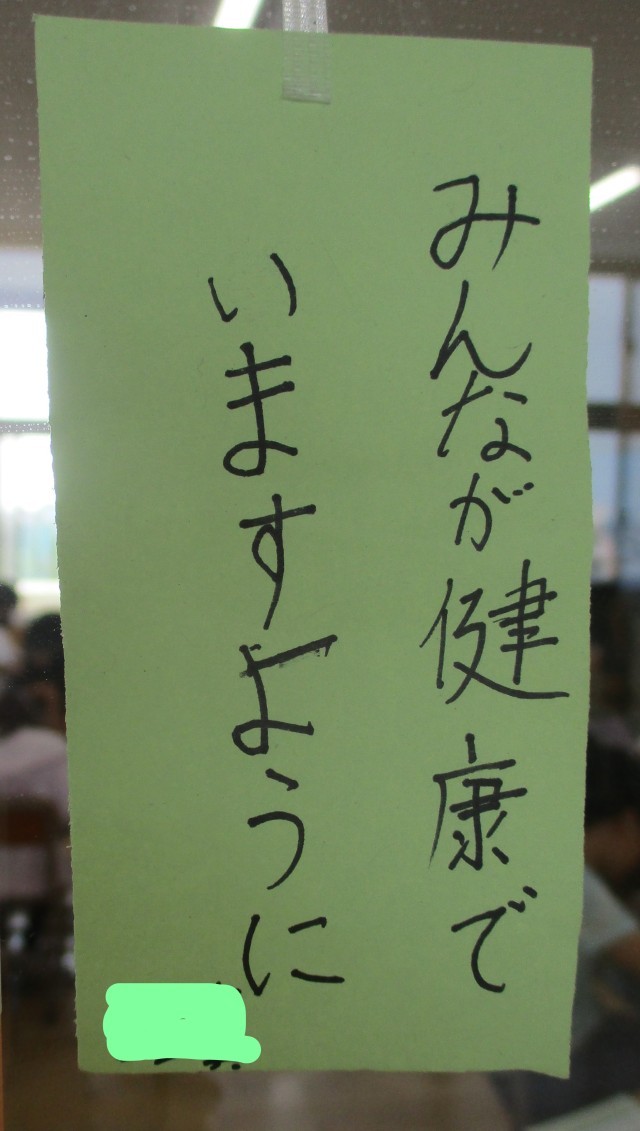 みんなが健康で
いますように